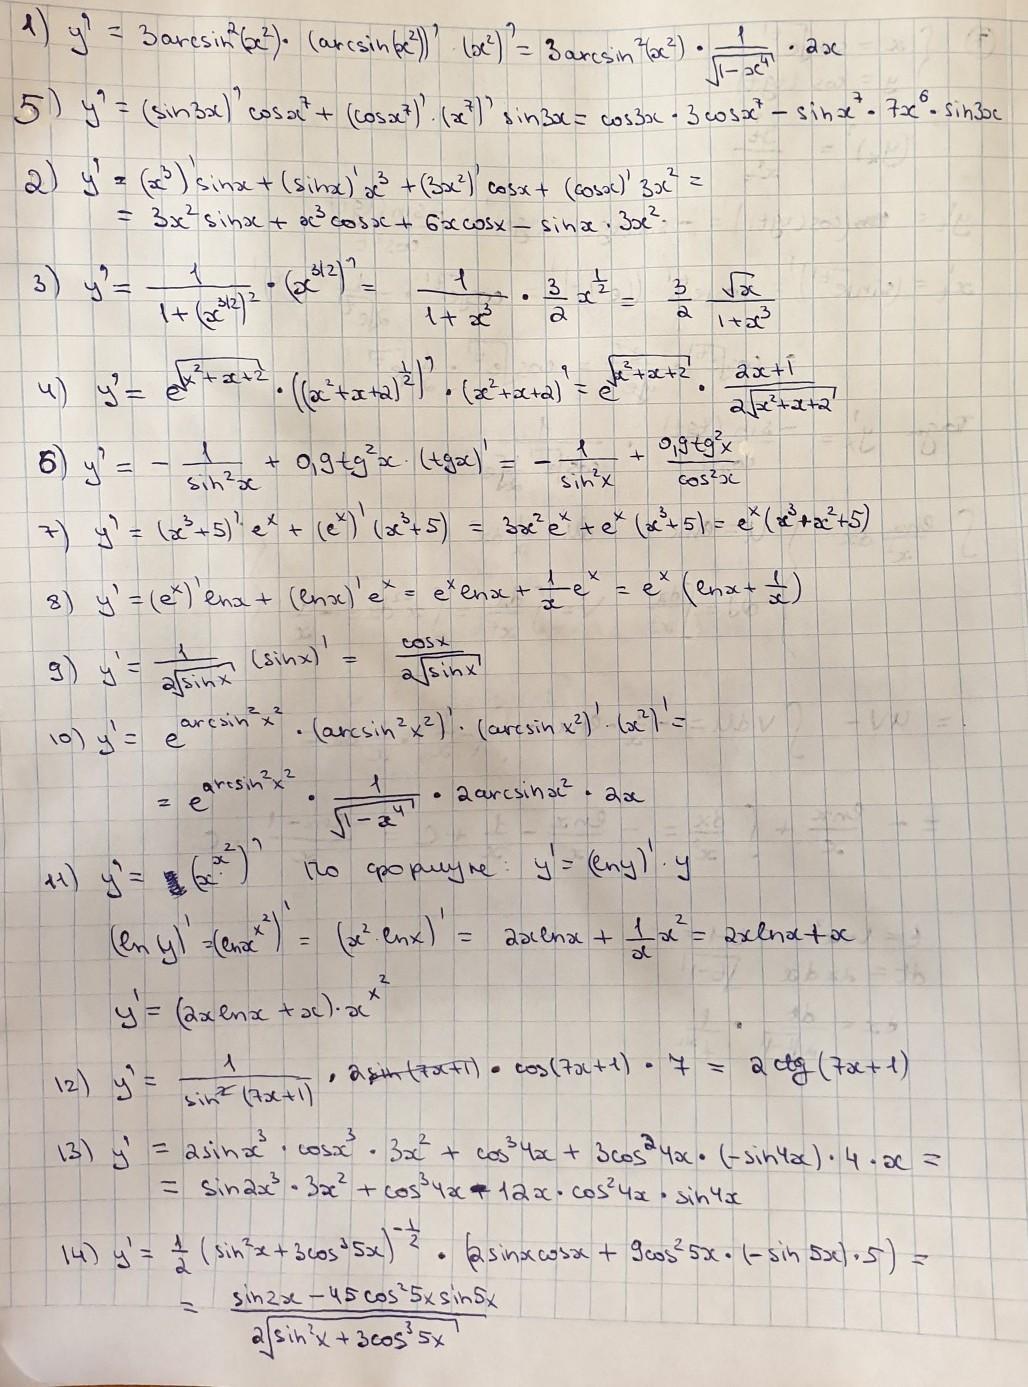 1) y' = 3arcsin²(x²)·(arcsin(x²))'·(x²)' = 3arcsin²(x²)·1/√(1-x⁴)·2x
5) y' = (sin3x)' cosx⁷ + (cosx⁷)'·(x⁷)' sin3x = cos3x·3cosx⁷ - sinx⁷·7x⁶·sin3x
2) y' = (x³)' sinx + (sinx)' x³ + (3x²)' cosx + (cosx)' 3x² =
= 3x² sinx + x³cosx + 6xcosx - sinx·3x².
3) y' = 1/(1+(x^(3/2))²)·(x^(3/2))' = 1/(1+x³)·3/2 x^(1/2) = 3/2 √x/(1+x³)
4) y' = e^√(x²+x+2)·((x²+x+2)^(1/2))'·(x²+x+2)' = e^√(x²+x+2)·(2x+1)/(2√(x²+x+2))
6) y' = -1/sin²x + 0,9tg²x·(tgx)' = -1/sin²x + 0,9tg²x/cos²x
7) y' = (x³+5)' eˣ + (eˣ)' (x³+5) = 3x²eˣ + eˣ(x³+5) = eˣ(x³+x²+5)
8) y' = (eˣ)' lnx + (lnx)' eˣ = eˣ lnx + 1/x eˣ = eˣ (lnx + 1/x)
9) y' = 1/(2√sinx) (sinx)' = cosx/(2√sinx)
10) y' = e^(arcsin²x²)·(arcsin²x²)'·(arcsinx²)'·(x²)' =
= e^(arcsin²x²)·1/√(1-x⁴)·2arcsinx²·2x
11) y' = (x^(x²))' По формуле: y' = (lny)'·y
(lny)' = (lnx^(x²))' = (x²·lnx)' = 2xlnx + 1/x x² = 2xlnx + x
y' = (2xlnx + x)·x^(x²)
12) y' = 1/sin²(7x+1)·2sin(7x+1)·cos(7x+1)·7 = 2ctg(7x+1)
13) y' = 2sinx³·cosx³·3x² + cos³4x + 3cos²4x·(-sin4x)·4·x =
= sin2x³·3x² + cos³4x - 12x·cos²4x·sin4x
14) y' = 1/2 (sin²x + 3cos³5x)^(-1/2)·(2sinxcosx + 9cos²5x·(-sin5x)·5) =
= (sin2x - 45cos²5x sin5x)/(2√(sin²x + 3cos³5x))